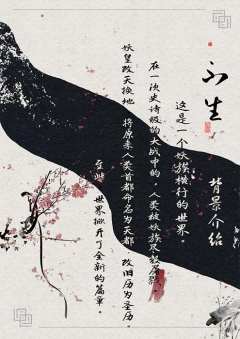 不生
背景介绍
这是一个妖族横行的世界。
在一次史诗级的大战中的，人类被妖族尽数屠戮。
妖皇改天换地，将原来人类首都命名为天都，改旧历为圣历。
自此，世界掀开了全新的篇章。